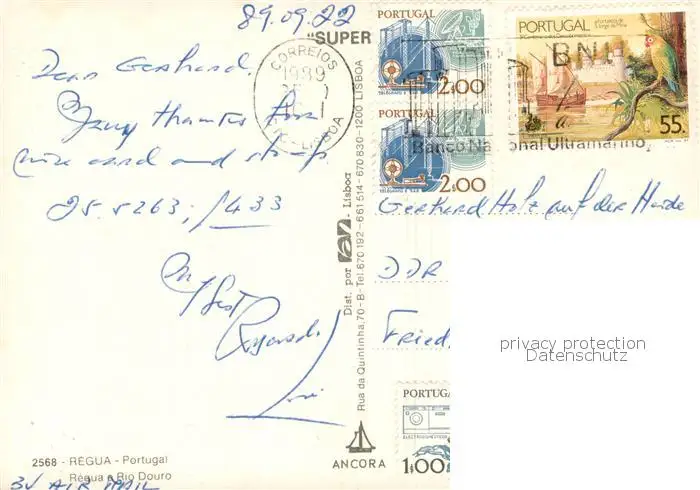 89.09.22
"SUPER
Dear Gerhard.
Many thanks for
nice card and stamp
25.5263; 1433
My best
Regards
2568 - RÉGUA - Portugal
Régua e Rio Douro
BY AIR MAIL
Dist. por - Lisboa
Rua da Quintinha, 70-B - Tel. 670 192 - 661 514 - 670 830 - 1200 LISBOA
ANCORA
CORREIOS
1989
LISBOA
PORTUGAL
2$00
PORTUGAL
2$00
PORTUGAL
55.
BNU
Banco Nacional Ultramarino
Gerhard Holz auf der Heide
DDR
Fried
privacy protection
Datenschutz
PORTUGA
1$00